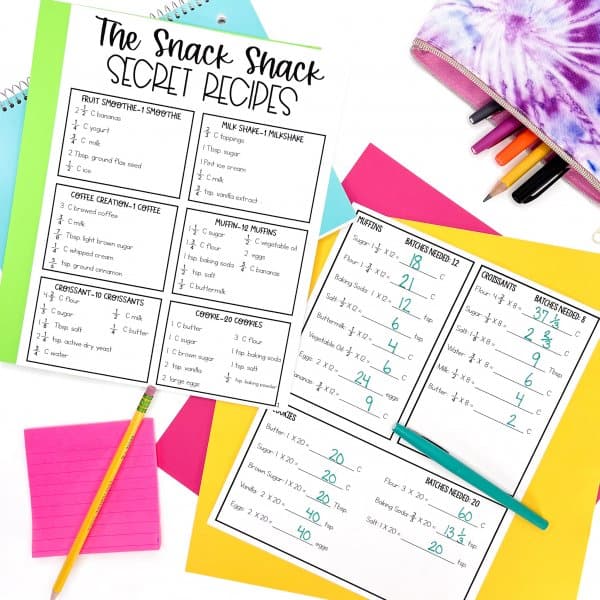 The Snack Shack
SECRET RECIPES
FRUIT SMOOTHIE-1 SMOOTHIE
2 1/2 C bananas
1/4 C yogurt
3/4 C milk
2 Tbsp. ground flax seed
1/2 C ice
MILK SHAKE-1 MILKSHAKE
2/3 C toppings
1 Tbsp. sugar
1 Pint ice cream
1/2 C milk
tsp. vanilla extract
COFFEE CREATION-1 COFFEE
3 C brewed coffee
3/4 C milk
Tbsp. light brown sugar
1/4 C whipped cream
tsp. ground cinnamon
MUFFIN-12 MUFFINS
1 1/2 C sugar
1 3/4 C flour
1 tsp. baking soda
1/2 tsp. salt
C buttermilk
1/2 C vegetable oil
2 eggs
3/4 C bananas
CROISSANT-10 CROISSANTS
4 2/3 C flour
1/3 C sugar
1 1/8 Tbsp. salt
tsp. active dry yeast
3/4 C water
1/2 C milk
1/4 C butter
COOKIE-20 COOKIES
1 C butter
1 C sugar
1 C brown sugar
2 tsp. vanilla
2 large eggs
3 C flour
1 tsp. baking soda
1 tsp. salt
tsp. baking powder
MUFFINS BATCHES NEEDED: 12
Sugar: 1 1/2 X 12 = 18 C
Flour: 1 3/4 X 12 = 21 C
Baking Soda: 1 X 12 = 12 tsp
Salt: 1/2 X 12 = 6 tsp
Buttermilk: X 12 = 4 C
Vegetable Oil: 1/2 X 12 = 6 C
Eggs: 2 X 12 = 24 eggs
Bananas: 3/4 X 12 = 9 C
CROISSANTS
BATCHES NEEDED: 8
Flour: 4 2/3 X 8 = 37 1/3 C
Sugar: 1/3 X 8 = 2 2/3 C
Salt: 1 1/8 X 8 = 9 Tbsp
Water: 3/4 X 8 = 6 C
Milk: 1/2 X 8 = 4 C
Butter: 1/4 X 8 = 2 C
COOKIES
BATCHES NEEDED: 20
Butter: 1 X 20 = 20 C
Sugar: 1 X 20 = 20 C
Brown Sugar: 1 X 20 = 20 Tbsp
Vanilla: 2 X 20 = 40 tsp
Eggs: 2 X 20 = 40 eggs
Flour: 3 X 20 = 60 C
Baking Soda: 2/3 X 20 = 13 1/3 tsp
Salt: 1 X 20 = 20 tsp